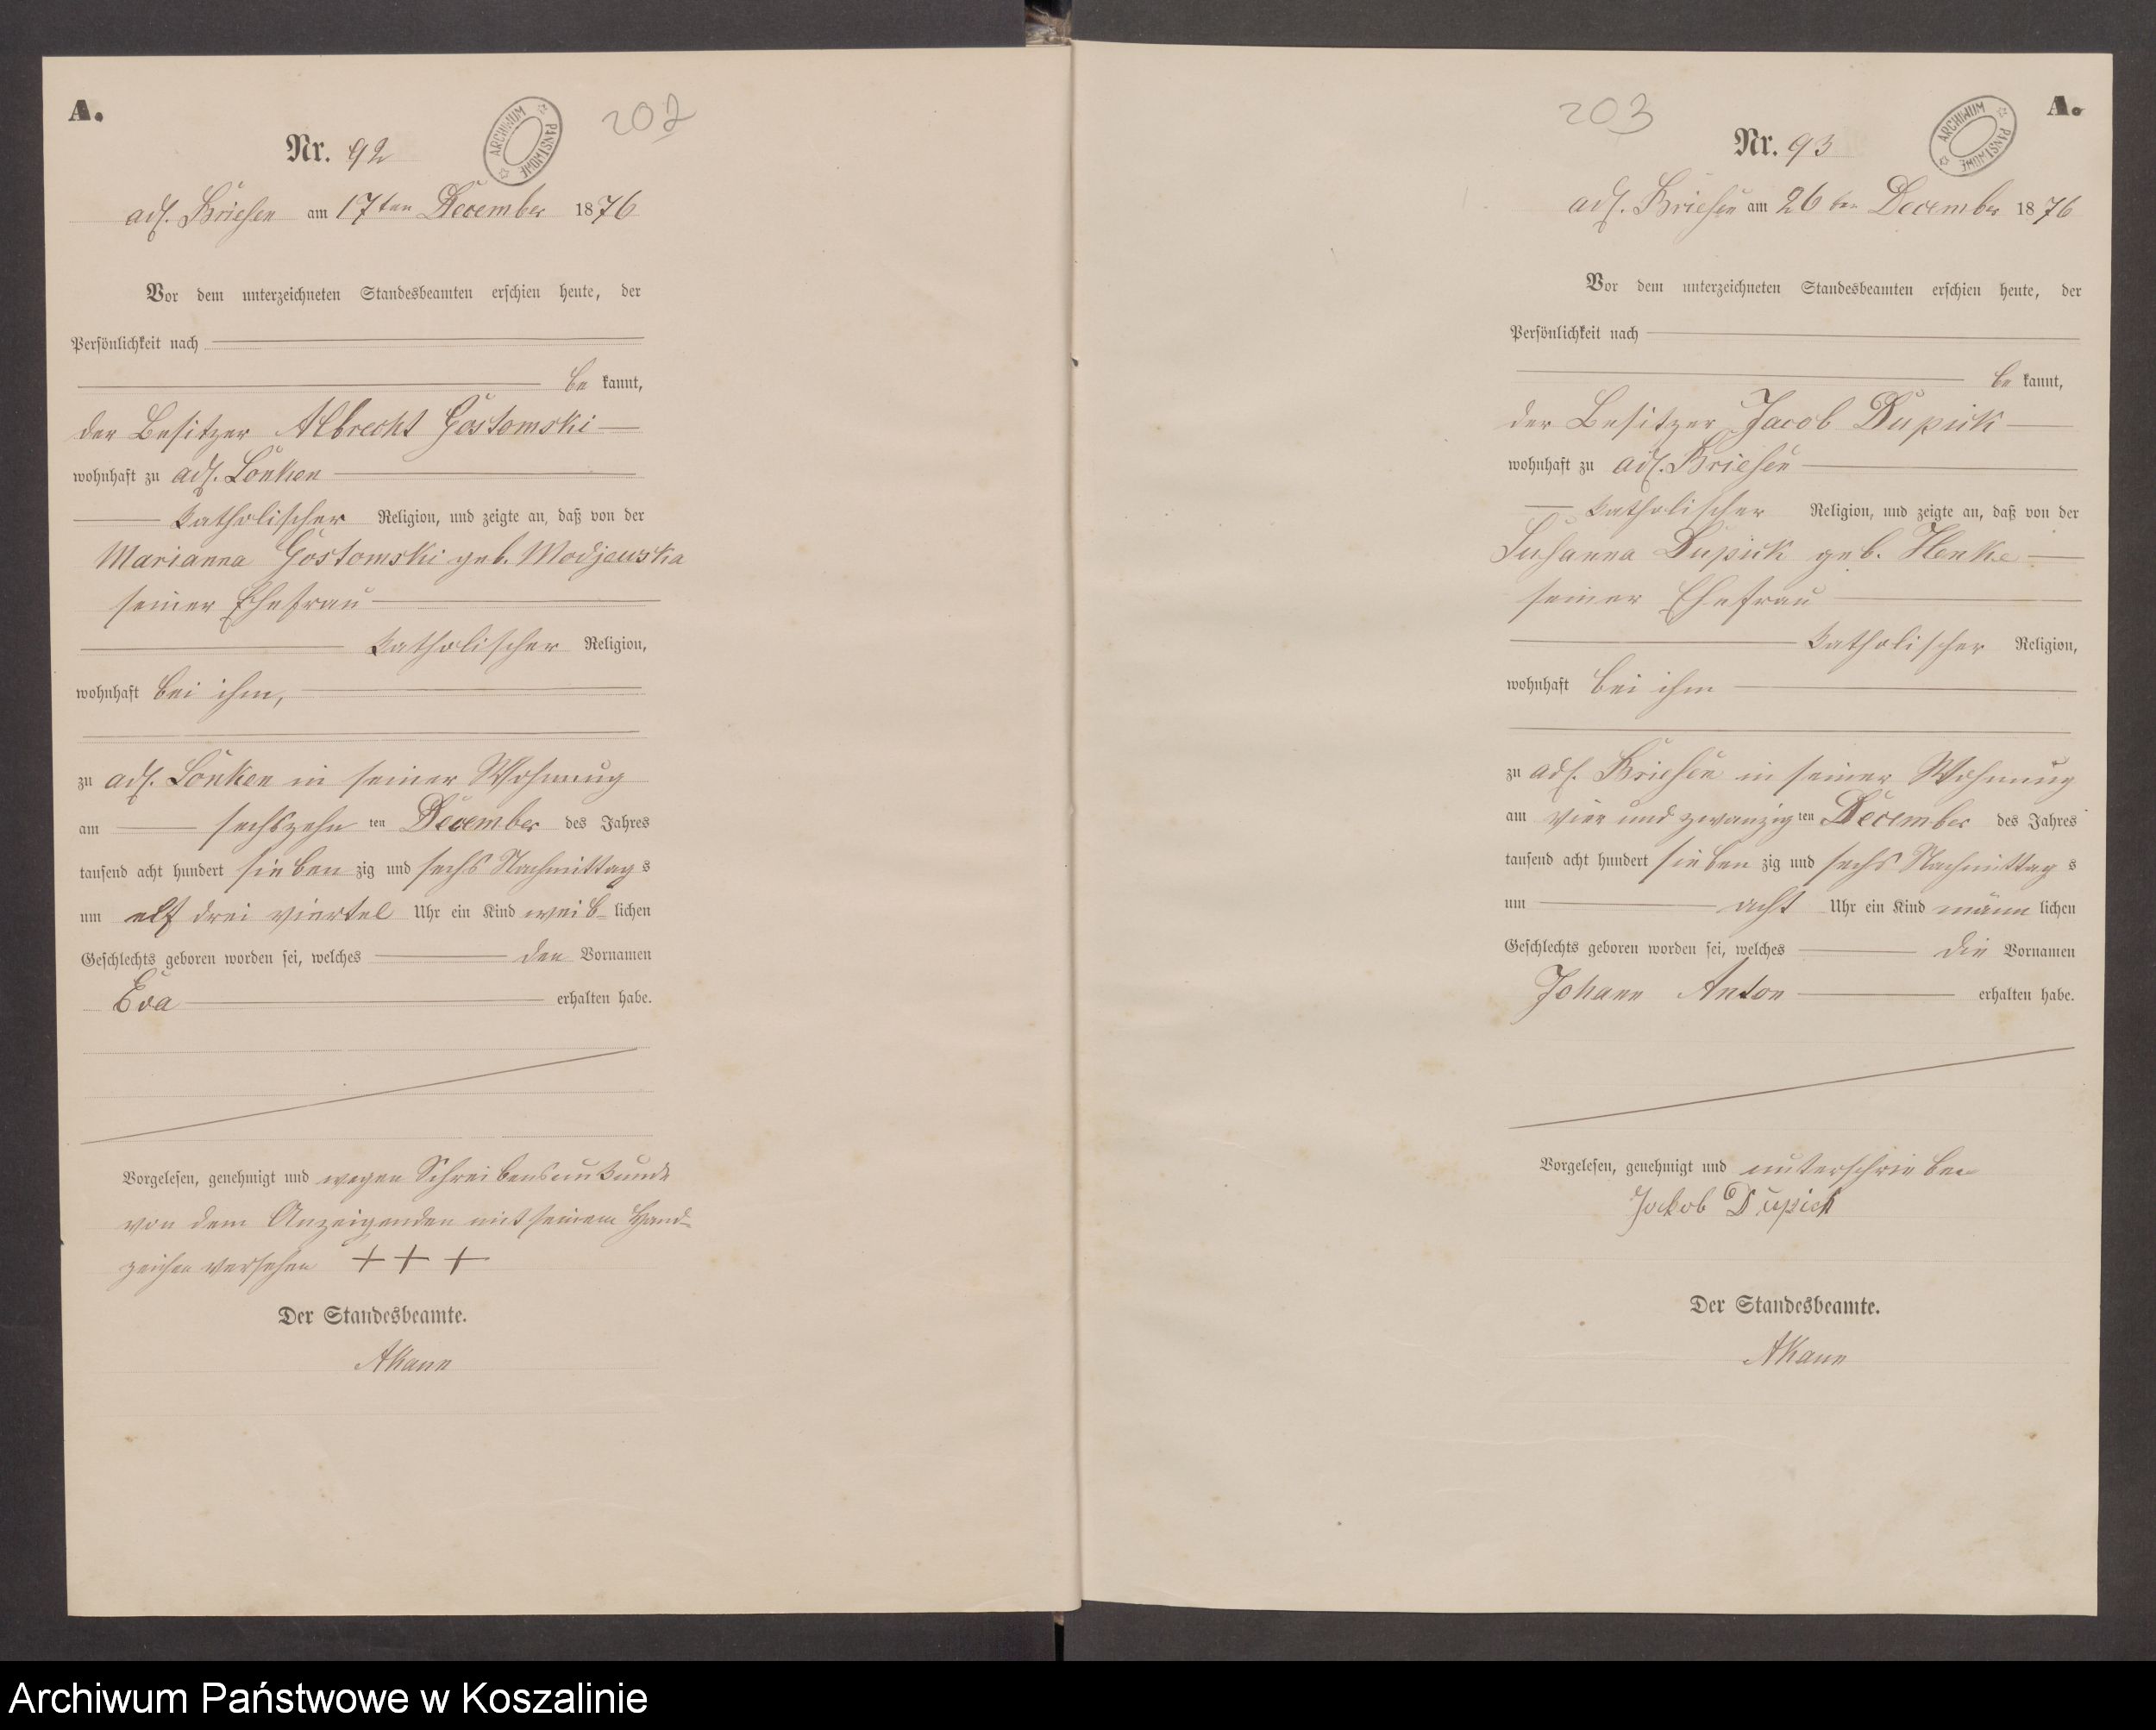 A.
202
Nr. 92
ARCHIWUM PAŃSTWOWE
adl. Briesen am 17ten December 1876
Vor dem unterzeichneten Standesbeamten erschien heute, der
Persönlichkeit nach
be kannt,
der Besitzer Albrecht Gostomski
wohnhaft zu adl. Lonken
katholischer Religion, und zeigte an, daß von der
Marianna Gostomski geb. Modjewska
seiner Ehefrau
katholischer Religion,
wohnhaft bei ihm,
zu adl. Lonken in seiner Wohnung
am sechszehn ten December des Jahres
tausend acht hundert sieben zig und sechs Nachmittag s
um elf drei viertel Uhr ein Kind weib- lichen
Geschlechts geboren worden sei, welches den Vornamen
Eva erhalten habe.
Vorgelesen, genehmigt und wegen Schreibensunkunde
von dem Anzeigenden mit seinem Hand-
zeichen versehen +++
Der Standesbeamte.
AKann
A.
203
Nr. 93
ARCHIWUM PAŃSTWOWE
adl. Briesen am 26ten December 1876
Vor dem unterzeichneten Standesbeamten erschien heute, der
Persönlichkeit nach
be kannt,
der Besitzer Jacob Dupick
wohnhaft zu adl. Briesen
katholischer Religion, und zeigte an, daß von der
Susanna Dupick geb. Henke
seiner Ehefrau
katholischer Religion,
wohnhaft bei ihm
zu adl. Briesen in seiner Wohnung
am vier und zwanzig ten December des Jahres
tausend acht hundert sieben zig und sechs Nachmittag s
um acht Uhr ein Kind männ lichen
Geschlechts geboren worden sei, welches die Vornamen
Johann Anton erhalten habe.
Vorgelesen, genehmigt und unterschrieben
Jackob Dupick
Der Standesbeamte.
AKann
Archiwum Państwowe w Koszalinie